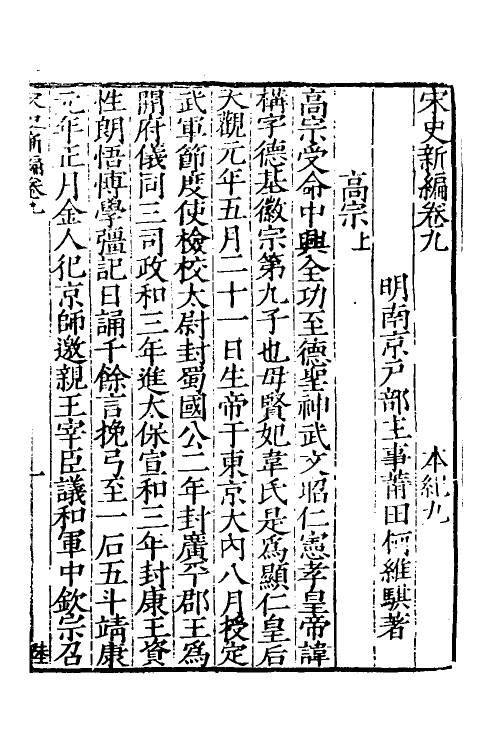 宋史新編卷九　本紀九
明南京戸部主事莆田何維騏著
高宗上
高宗受命中興全功至德聖神武文昭仁憲孝皇帝諱
構字德基徽宗第九子也母賢妃韋氏是爲顯仁皇后
大觀元年五月二十一日生帝于東京大內八月授定
武軍節度使檢校太尉封蜀國公二年封廣平郡王爲
開府儀同三司政和三年進太保宣和三年封康王資
性朗悟博學彊記日誦千餘言挽弓至一石五斗靖康
元年正月金人犯京師邀親王宰臣議和軍中欽宗召
宋史新編卷九　一